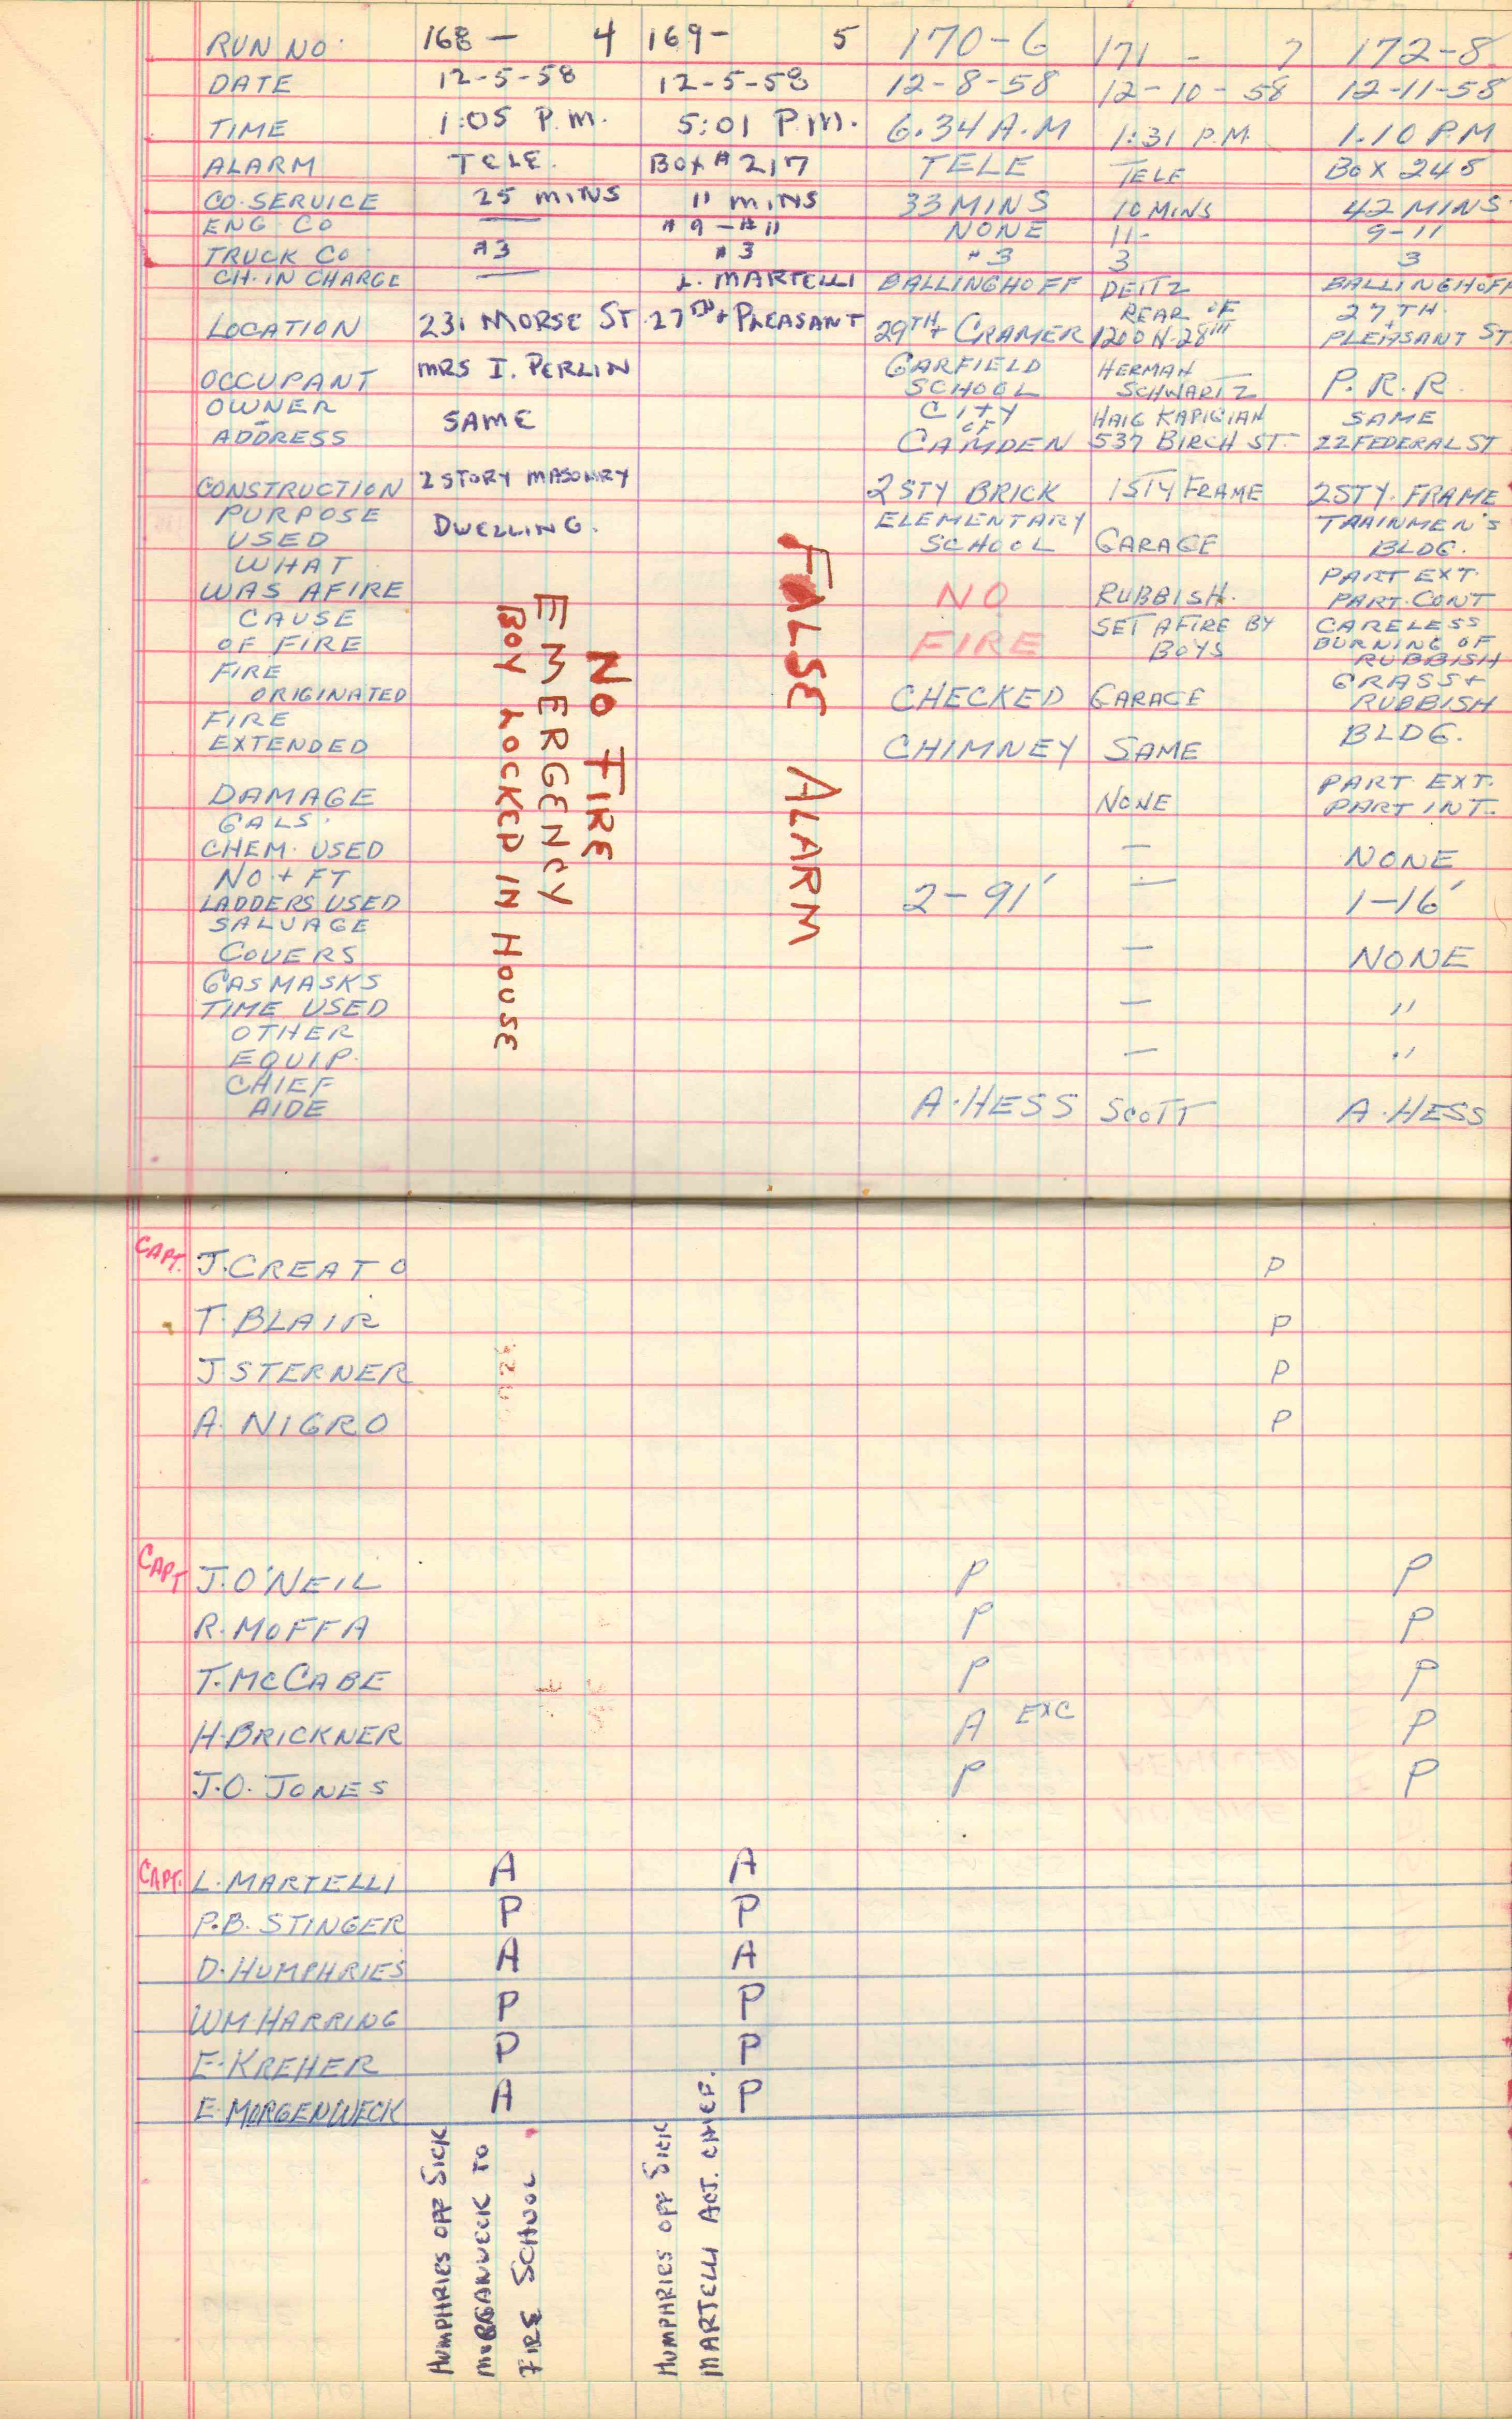 RUN NO. 168 - 4 169 - 5 170-6 171 - 7 172-8
DATE 12-5-58 12-5-58 12-8-58 12-10-58 12-11-58
TIME 1:05 P.M. 5:01 P.M. 6.34 A.M 1:31 P.M. 1.10 PM
ALARM TELE. BOX # 217 TELE TELE BOX 245
CO. SERVICE 25 MINS 11 MINS 33 MINS 10 MINS 42 MINS
ENG. CO — #9 - #11 NONE 11- 9-11
TRUCK CO #3 #3 #3 3 3
CH. IN CHARGE — L. MARTELLI BALLINGHOFF DEITZ BALLINGHOFF
LOCATION 231 MORSE ST. 27TH + PLEASANT 29TH + CRAMER REAR OF 1200 N. 28TH 27TH + PLEASANT ST.
OCCUPANT MRS I. PERLIN GARFIELD SCHOOL HERMAN SCHWARTZ P.R.R.
OWNER - ADDRESS SAME CITY OF CAMDEN HAIG KAPIGIAN 537 BIRCH ST. SAME 22 FEDERAL ST
CONSTRUCTION 2 STORY MASONRY 2 STY BRICK 1 STY FRAME 2 STY. FRAME
PURPOSE USED DWELLING. ELEMENTARY SCHOOL GARAGE TRAINMEN'S BLDG.
WHAT WAS AFIRE NO RUBBISH. PART EXT. PART. CONT
CAUSE OF FIRE FIRE SET AFIRE BY BOYS CARELESS BURNING OF RUBBISH
FIRE ORIGINATED CHECKED GARAGE GRASS + RUBBISH
FIRE EXTENDED CHIMNEY SAME BLDG.
DAMAGE NONE PART EXT. PART INT.
GALS. CHEM. USED — NONE
NO. + FT LADDERS USED 2-91' — 1-16'
SALVAGE COVERS — NONE
GAS MASKS TIME USED — "
OTHER EQUIP. — "
CHIEF AIDE A. HESS SCOTT A. HESS
NO FIRE
EMERGENCY
BOY LOCKED IN HOUSE
FALSE ALARM
CAPT. J. CREATO P
T. BLAIR P
J STERNER P
A. NIGRO P
CAPT J. O'NEIL P P
R. MOFFA P P
T. McCABE P P
H. BRICKNER A EXC P
J.O. JONES P P
CAPT. L. MARTELLI A A
P.B. STINGER P P
D. HUMPHRIES A A
WM HARRING P P
E. KREHER P P
E. MORGENWECK A P
HUMPHRIES OFF SICK
MORGANWECK TO
FIRE SCHOOL
HUMPHRIES OFF SICK
MARTELLI ACT. CHIEF.